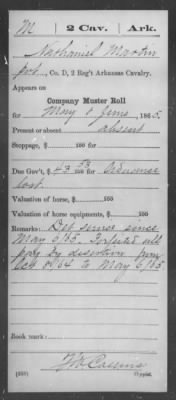 M | 2 Cav. | Ark.
Nathaniel Martin
pvt., Co. D, 2 Reg't Arkansas Cavalry.
Appears on
Company Muster Roll
for May & June, 1865.
Present or absent absent
Stoppage, $ 100 for
Due Gov't, $43 53/100 for Ordnance
lost.
Valuation of horse, $ 100
Valuation of horse equipments, $ 100
Remarks: Det. service since
May 6/65. Forfeited all
pay by desertion from
Oct 8/64 to May 6/65
Book mark:
(358) Copyist.